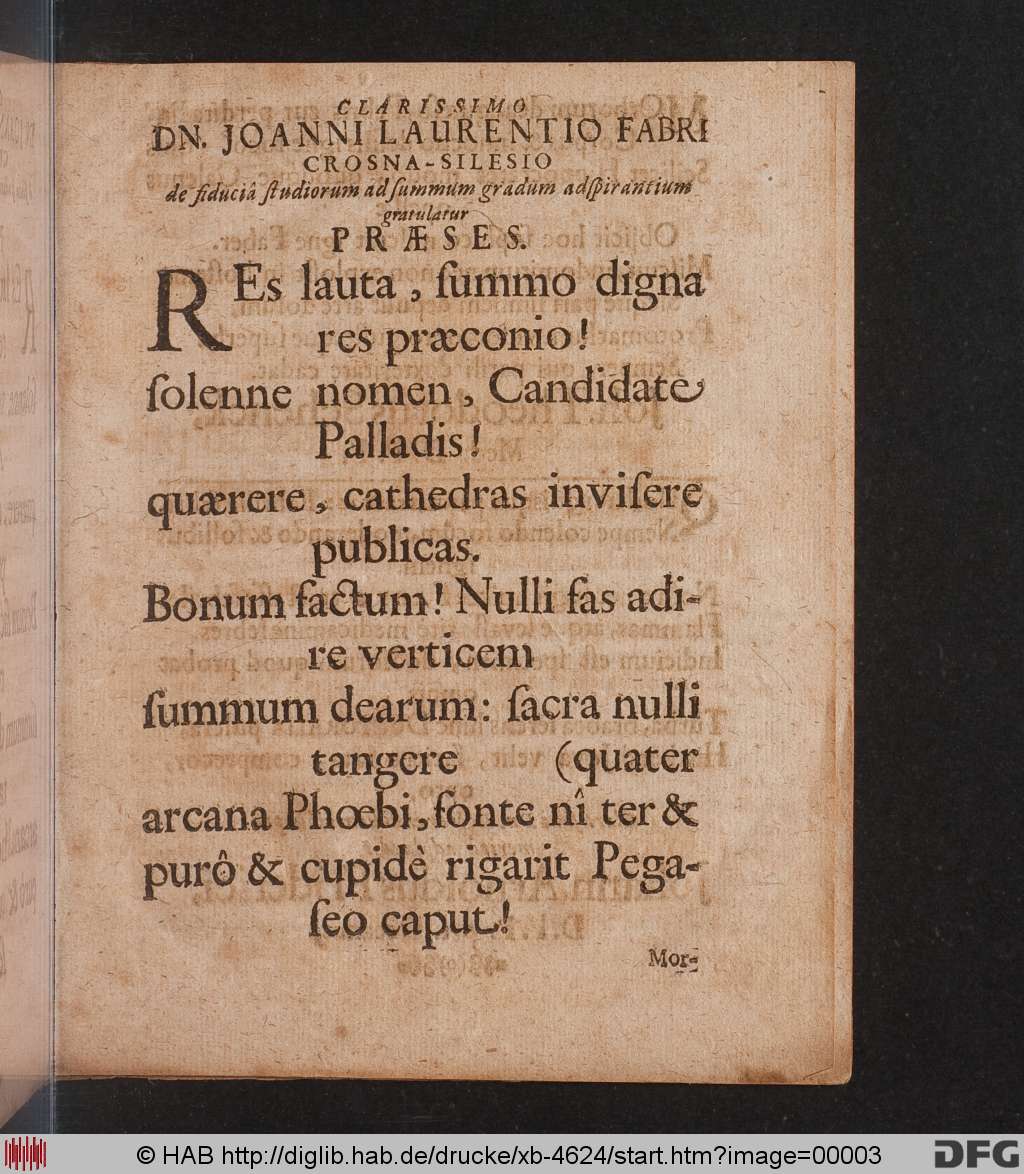 CLARISSIMO
DN. JOANNI LAURENTIO FABRI
CROSNA-SILESIO
de fiduciâ ſtudiorum ad ſummum gradum adſpirantium
gratulatur
PRÆSES.
REs lauta, ſummo digna
res præconio!
ſolenne nomen, Candidate
Palladis!
quærere, cathedras inviſere
publicas.
Bonum factum! Nulli fas adi-
re verticem
ſummum dearum: ſacra nulli
tangere (quater
arcana Phœbi, fonte nî ter &
purô & cupidè rigarit Pega-
ſeo caput!
Mor-
© HAB http://diglib.hab.de/drucke/xb-4624/start.htm?image=00003
DFG